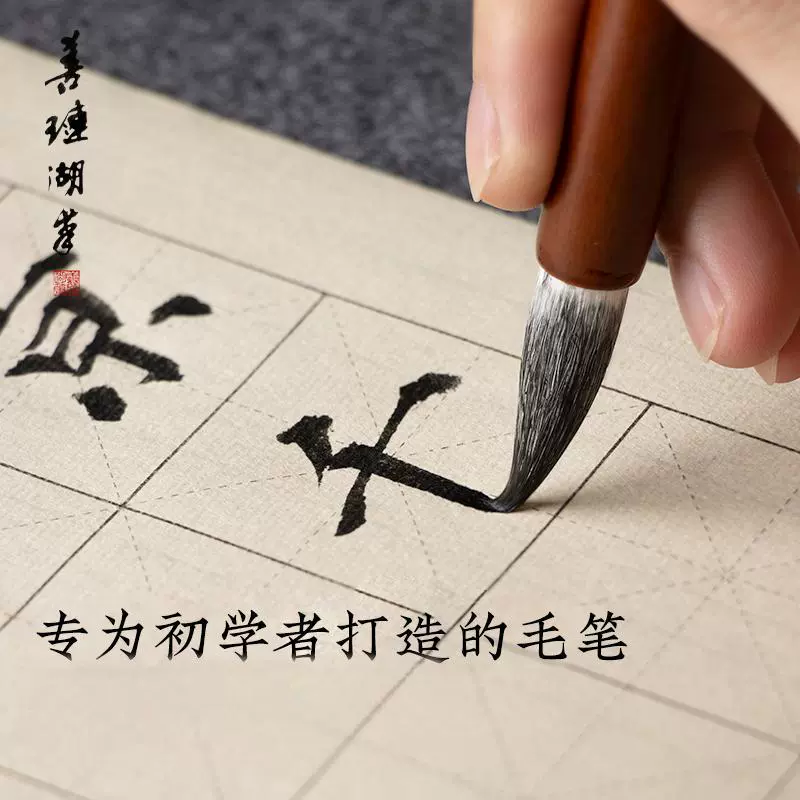 善璉湖筆
专为初学者打造的毛笔